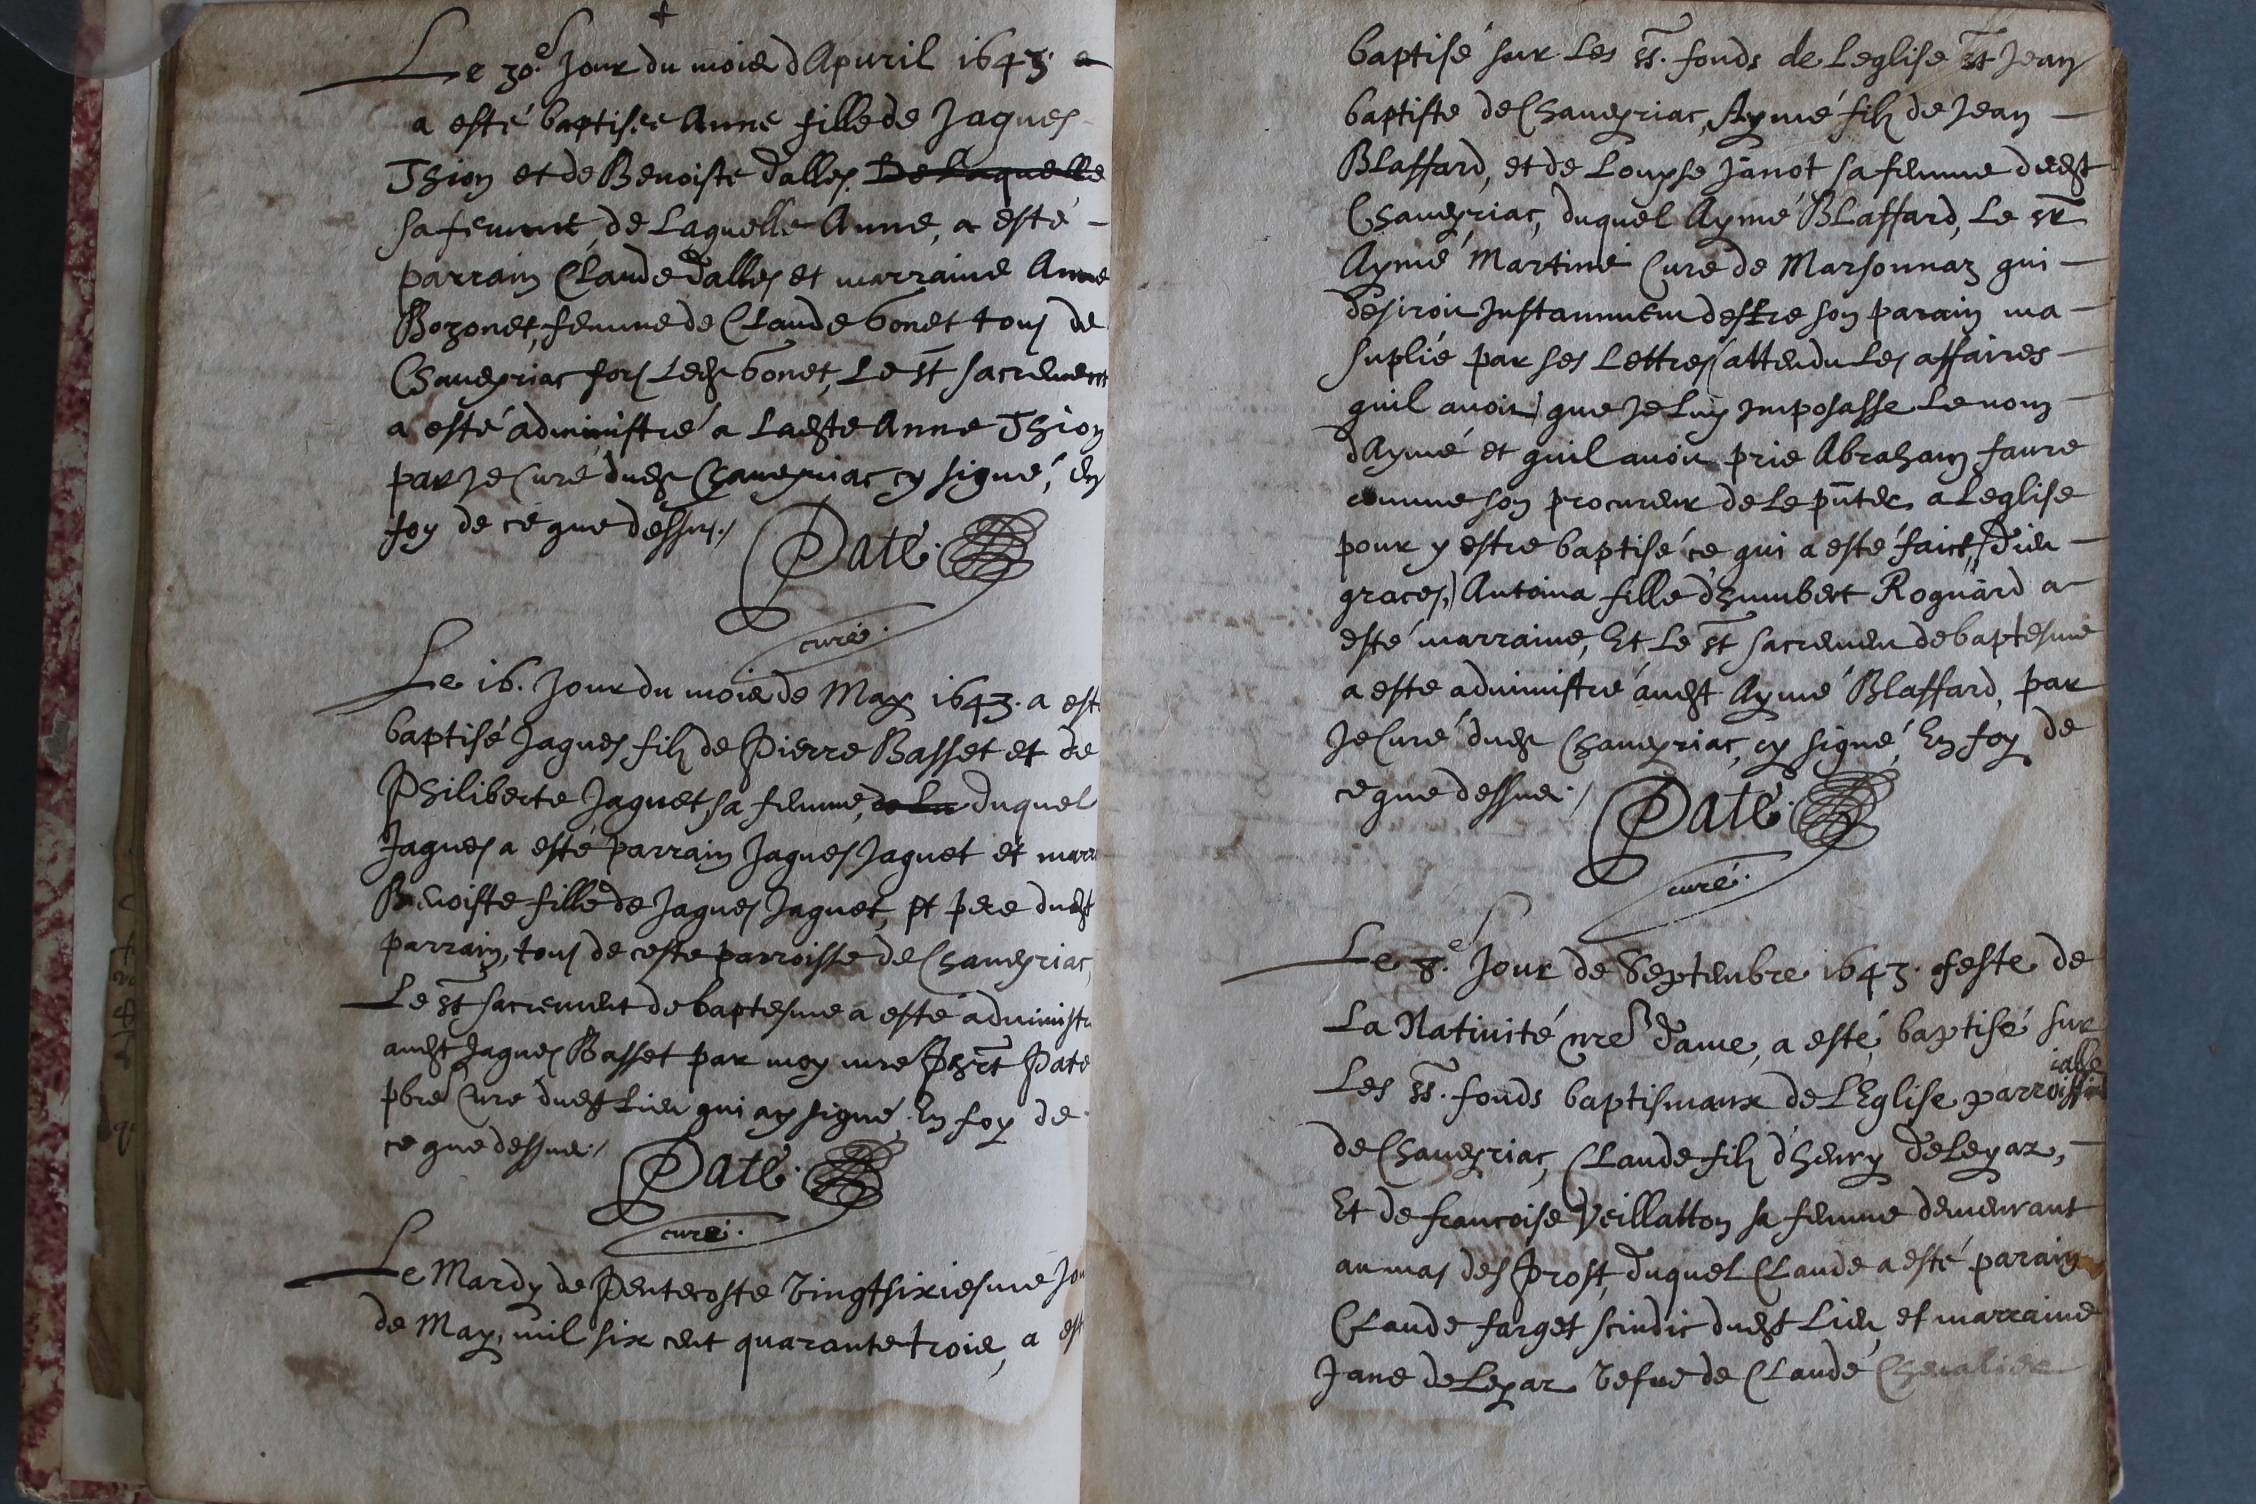 Le 30e. Jour du mois dApuril 1643. a
a esté baptisée Anne fille de Jaques
Thion et de Benoiste dalles. De Laquelle
sa femme, de Laquelle Anne, a esté
parrain Claude dalles et marraine Anne
Bozonet, femme de Claude bonet tous de
Chaueyriac fors Ledit bonet, Le st sacrement
a esté administré a Ladite Anne Thion
par Je Curé dudit Chaueyriac cy signé, En
foy de ce que dessus./
Paté.
curé.
Le 16. Jour du mois de May 1643. a esté
baptisé Jaques filz de Pierre Basset et de
Philiberte Jaquet sa femme, de La duquel
Jaques a esté parrain Jaques Jaquet et marr
Benoiste fille de Jaques Jaquet, et pere dudit
parrain, tous de ceste parroisse de Chaueyriac,
Le st sacrement de baptesme a esté administr
audit Jaques Basset par moy mre Phrt Paté
pbre Curé dudit Lieu qui ay signé. En foy de
ce que dessus./
Paté.
curé.
Le Mardy de Pentecoste Vingtsixiesme Jou
de May, mil six cent quarante trois, a est
baptisé sur Les ss. fonds de Leglise st Jean
baptiste de Chaueyriac, Aymé filz de Jean
Blaffard, et de Louyse Janot sa femme dudit
Chaueyriac, duquel Aymé Blaffard, Le sr
Aymé Martine Curé de Marsonnaz qui
desiroit Instamment destre son parain ma
suplié par ses Lettres (attendu Les affaires
quil auoit) que Je Luy Imposasse Le nom
dAymé et quil auoit prié Abraham faure
comme son procureur de Le pnter a Leglise
pour y estre baptisé ce qui a esté faict, (Dieu
graces,) Antoina fille dhumbert Rognard a
esté marraine, Et Le st sacrement de baptesme
a este administré audit Aymé Blaffard, par
Je Curé dudit Chaueyriac, cy signé, En foy de
ce que dessus./
Paté.
curé.
Le 8e. Jour de Septembre 1643. feste de
La Natiuité nre Dame, a esté, baptisé sur
Les ss. fonds baptismaux de LEglise parroissialle
de Chaueyriac, Claude filz dhenry deLeyaz,
Et de francoise Veillatton sa femme demeurant
au mas des Prost, duquel Claude a esté parain
Claude farget scindic dudit Lieu et marraine
Jane deLeyaz Vefue de Claude Cheualier